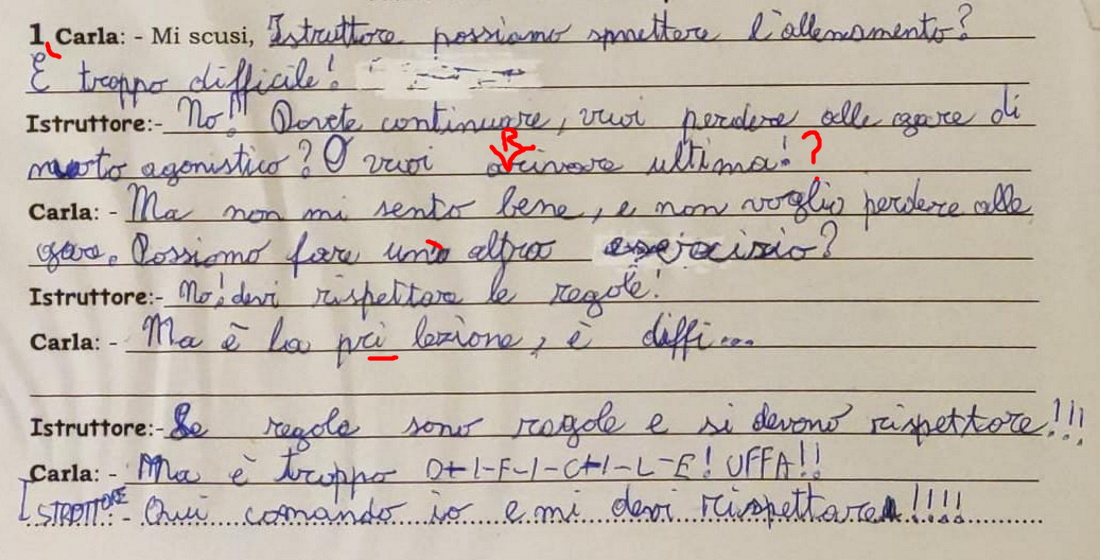 1 Carla: - Mi scusi, Istruttore possiamo smettere l'allenamento?
È troppo difficile!
Istruttore:- No!!! Dovete continuare, vuoi perdere alle gare di
nuoto agonistico? O vuoi arivare ultima! ?
R
Carla: - Ma non mi sento bene, e non voglio perdere alle
gare. Possiamo fare un altro esercizio?
Istruttore:- No! devi rispettare le regole!
Carla: - Ma è la pri lezione, è diffi...
Istruttore:- Le regole sono regole e si devono rispettare!!!
Carla: - Ma è troppo D-I-F-I-C-I-L-E! UFFA!!
ISTRUTTORE - Qui comando io e mi devi rispettare!!!!